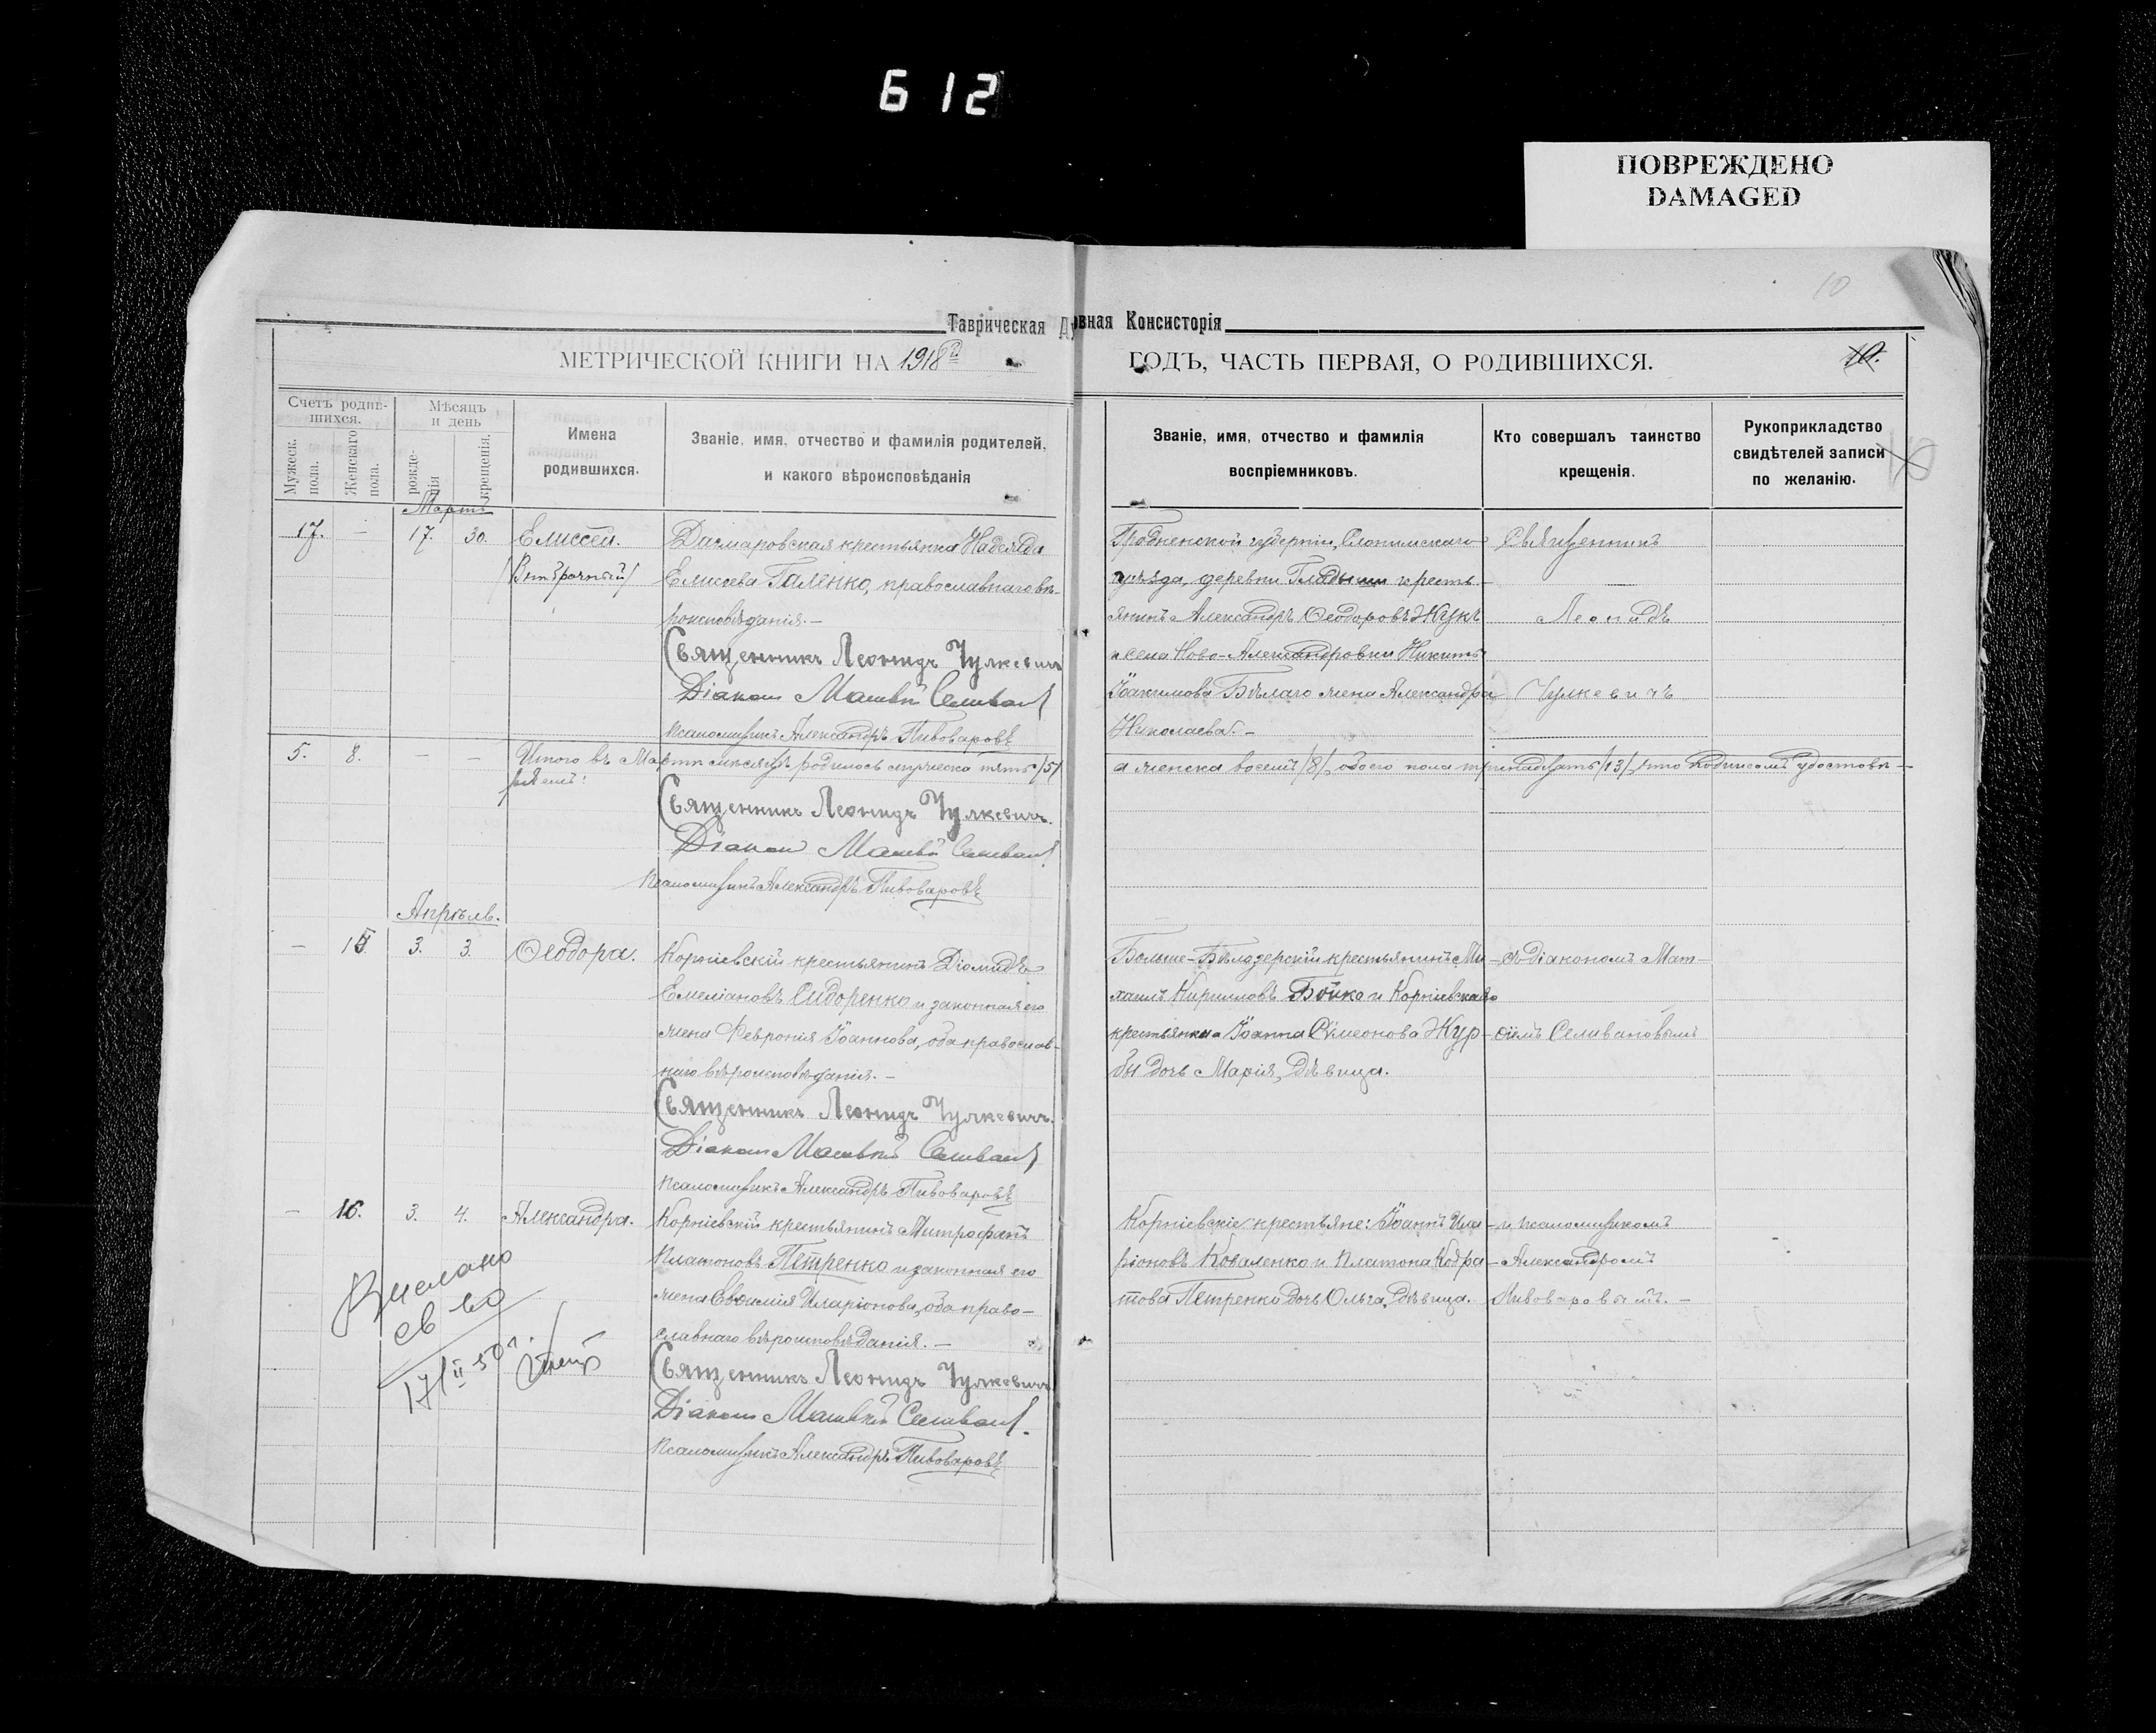 612
ПОВРЕЖДЕНО
DAMAGED
10
Таврическая Духовная Консисторія
МЕТРИЧЕСКОЙ КНИГИ НА 1918й
ГОДЪ, ЧАСТЬ ПЕРВАЯ, О РОДИВШИХСЯ.
10.
Счетъ родив-
шихся.
Мужеск.
пола.
Женскаго
пола.
Мѣсяцъ
и день
рожде-
нія
крещенія.
Имена
родившихся.
Званіе, имя, отчество и фамилія родителей,
и какого вѣроисповѣданія
Званіе, имя, отчество и фамилія
воспріемниковъ.
Кто совершалъ таинство
крещенія.
Рукоприкладство
свидѣтелей записи
по желанію.
Мартъ
17. — 17. 30. Елиссей.
/Внѣбрачный/
Надежда
Елисеева Галенко, православнаго вѣ-
роисповѣданія.—
Священникъ Леонидъ Чулкевичъ
Діаконъ Матвѣй Селиванъ
Псаломщикъ Александръ Пивоваровъ
Гродненской губерніи, Слонимскаго
уѣзда, деревни кресть-
янинъ Александръ Ѳеодоровъ Жукъ
и села Ново-Александровки Никиты
Іоакимова Бѣлаго жена Александра
Николаева.—
Священникъ
—
Леонидъ
Чулкевичъ
5. 8. — — Итого въ Мартѣ мѣсяцѣ родилось мужеска пять /5/
а женска восемь /8/, обоего пола тринадцать /13/, что подписомъ удостовѣ-
ряемъ:
Священникъ Леонидъ Чулкевичъ.
Діаконъ Матвѣй Селиванъ
Псаломщикъ Александръ Пивоваровъ
Апрѣль.
— 3. 3. Ѳеодора.
Корніевскій крестьянинъ Діомидъ
Емеліановъ Сидоренко и законная его
жена Февронія Іоаннова, оба православ-
наго вѣроисповѣданія.—
Священникъ Леонидъ Чулкевичъ.
Діаконъ Матвѣй Селиванъ
Псаломщикъ Александръ Пивоваровъ
Больше-Бѣлозерскій крестьянинъ Ми-
хаилъ Кирилловъ Бойко и Корніевская
крестьянина Іоанна Симеонова Жур-
бы дочь Марія, дѣвица.
съ діакономъ Мат-
ѳіемъ Селивановымъ
— 16. 3. 4. Александра.
Корніевскій крестьянинъ Митрофанъ
Платоновъ Петренко и законная его
жена Евѳимія Иларіонова, оба право-
славнаго вѣроисповѣданія.—
Священникъ Леонидъ Чулкевичъ
Діаконъ Матвѣй Селиванъ.
Псаломщикъ Александръ Пивоваровъ
Корніевскіе крестьяне: Іоаннъ Ила-
ріоновъ Коваленко и Платона Кодра-
това Петренки дочь Ольга, дѣвица.
и псаломщикомъ
Александромъ
Пивоваровымъ.—
Выслано
св-во
17/II 50 г.